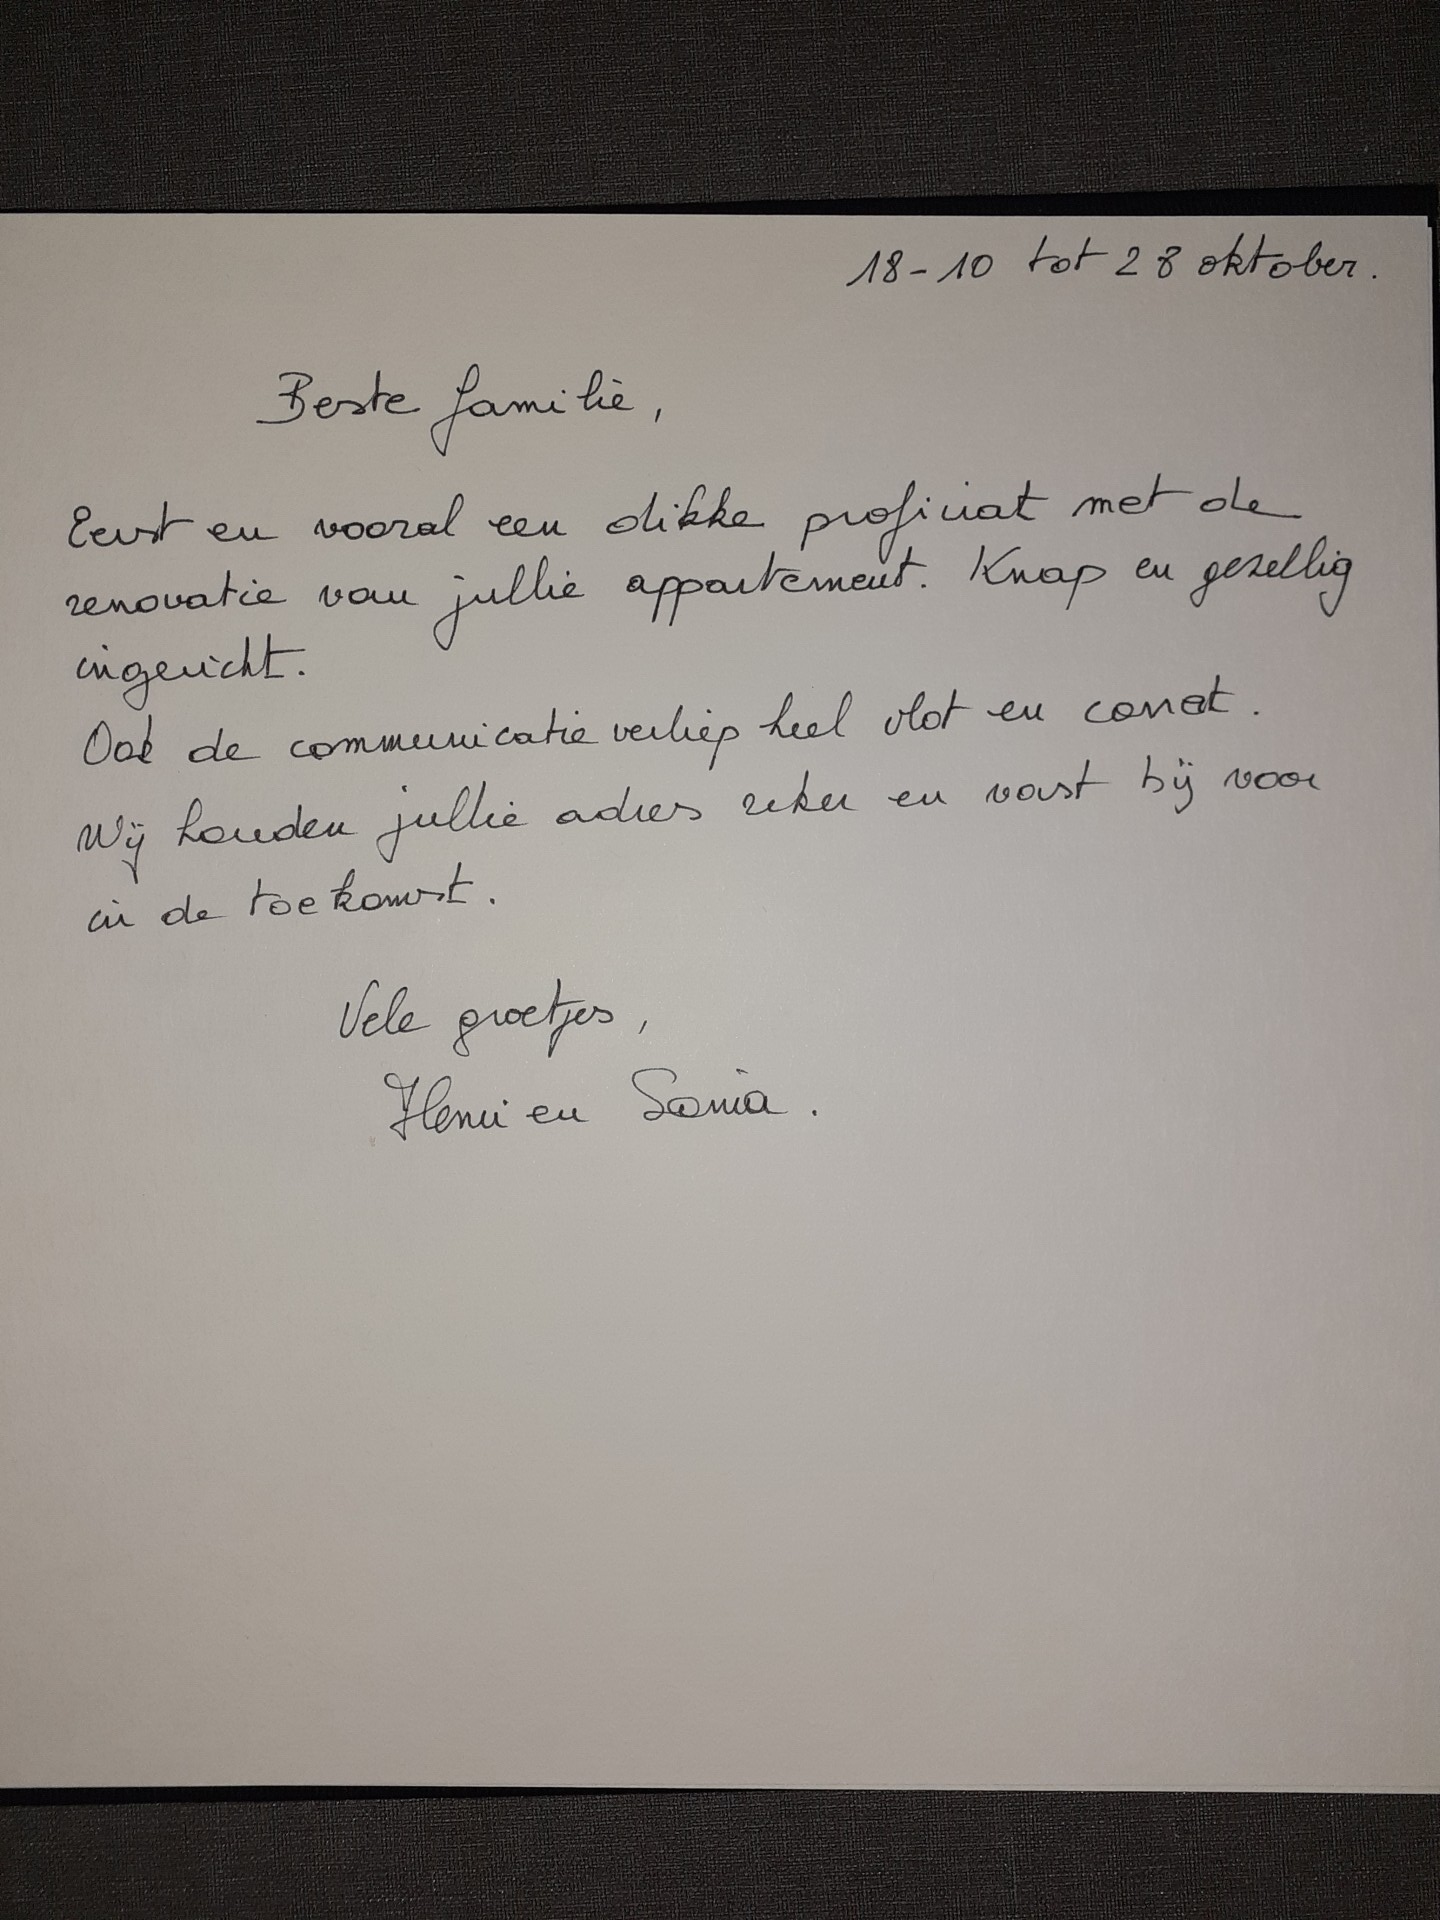 18-10 tot 28 oktober.
Beste familie,
Eerst en vooral een dikke proficiat met de
renovatie van jullie appartement. Knap en gezellig
ingericht.
Ook de communicatie verliep heel vlot en correct.
Wij houden jullie adres zeker en vast bij voor
in de toekomst.
Vele groetjes,
Henri en Sonia.